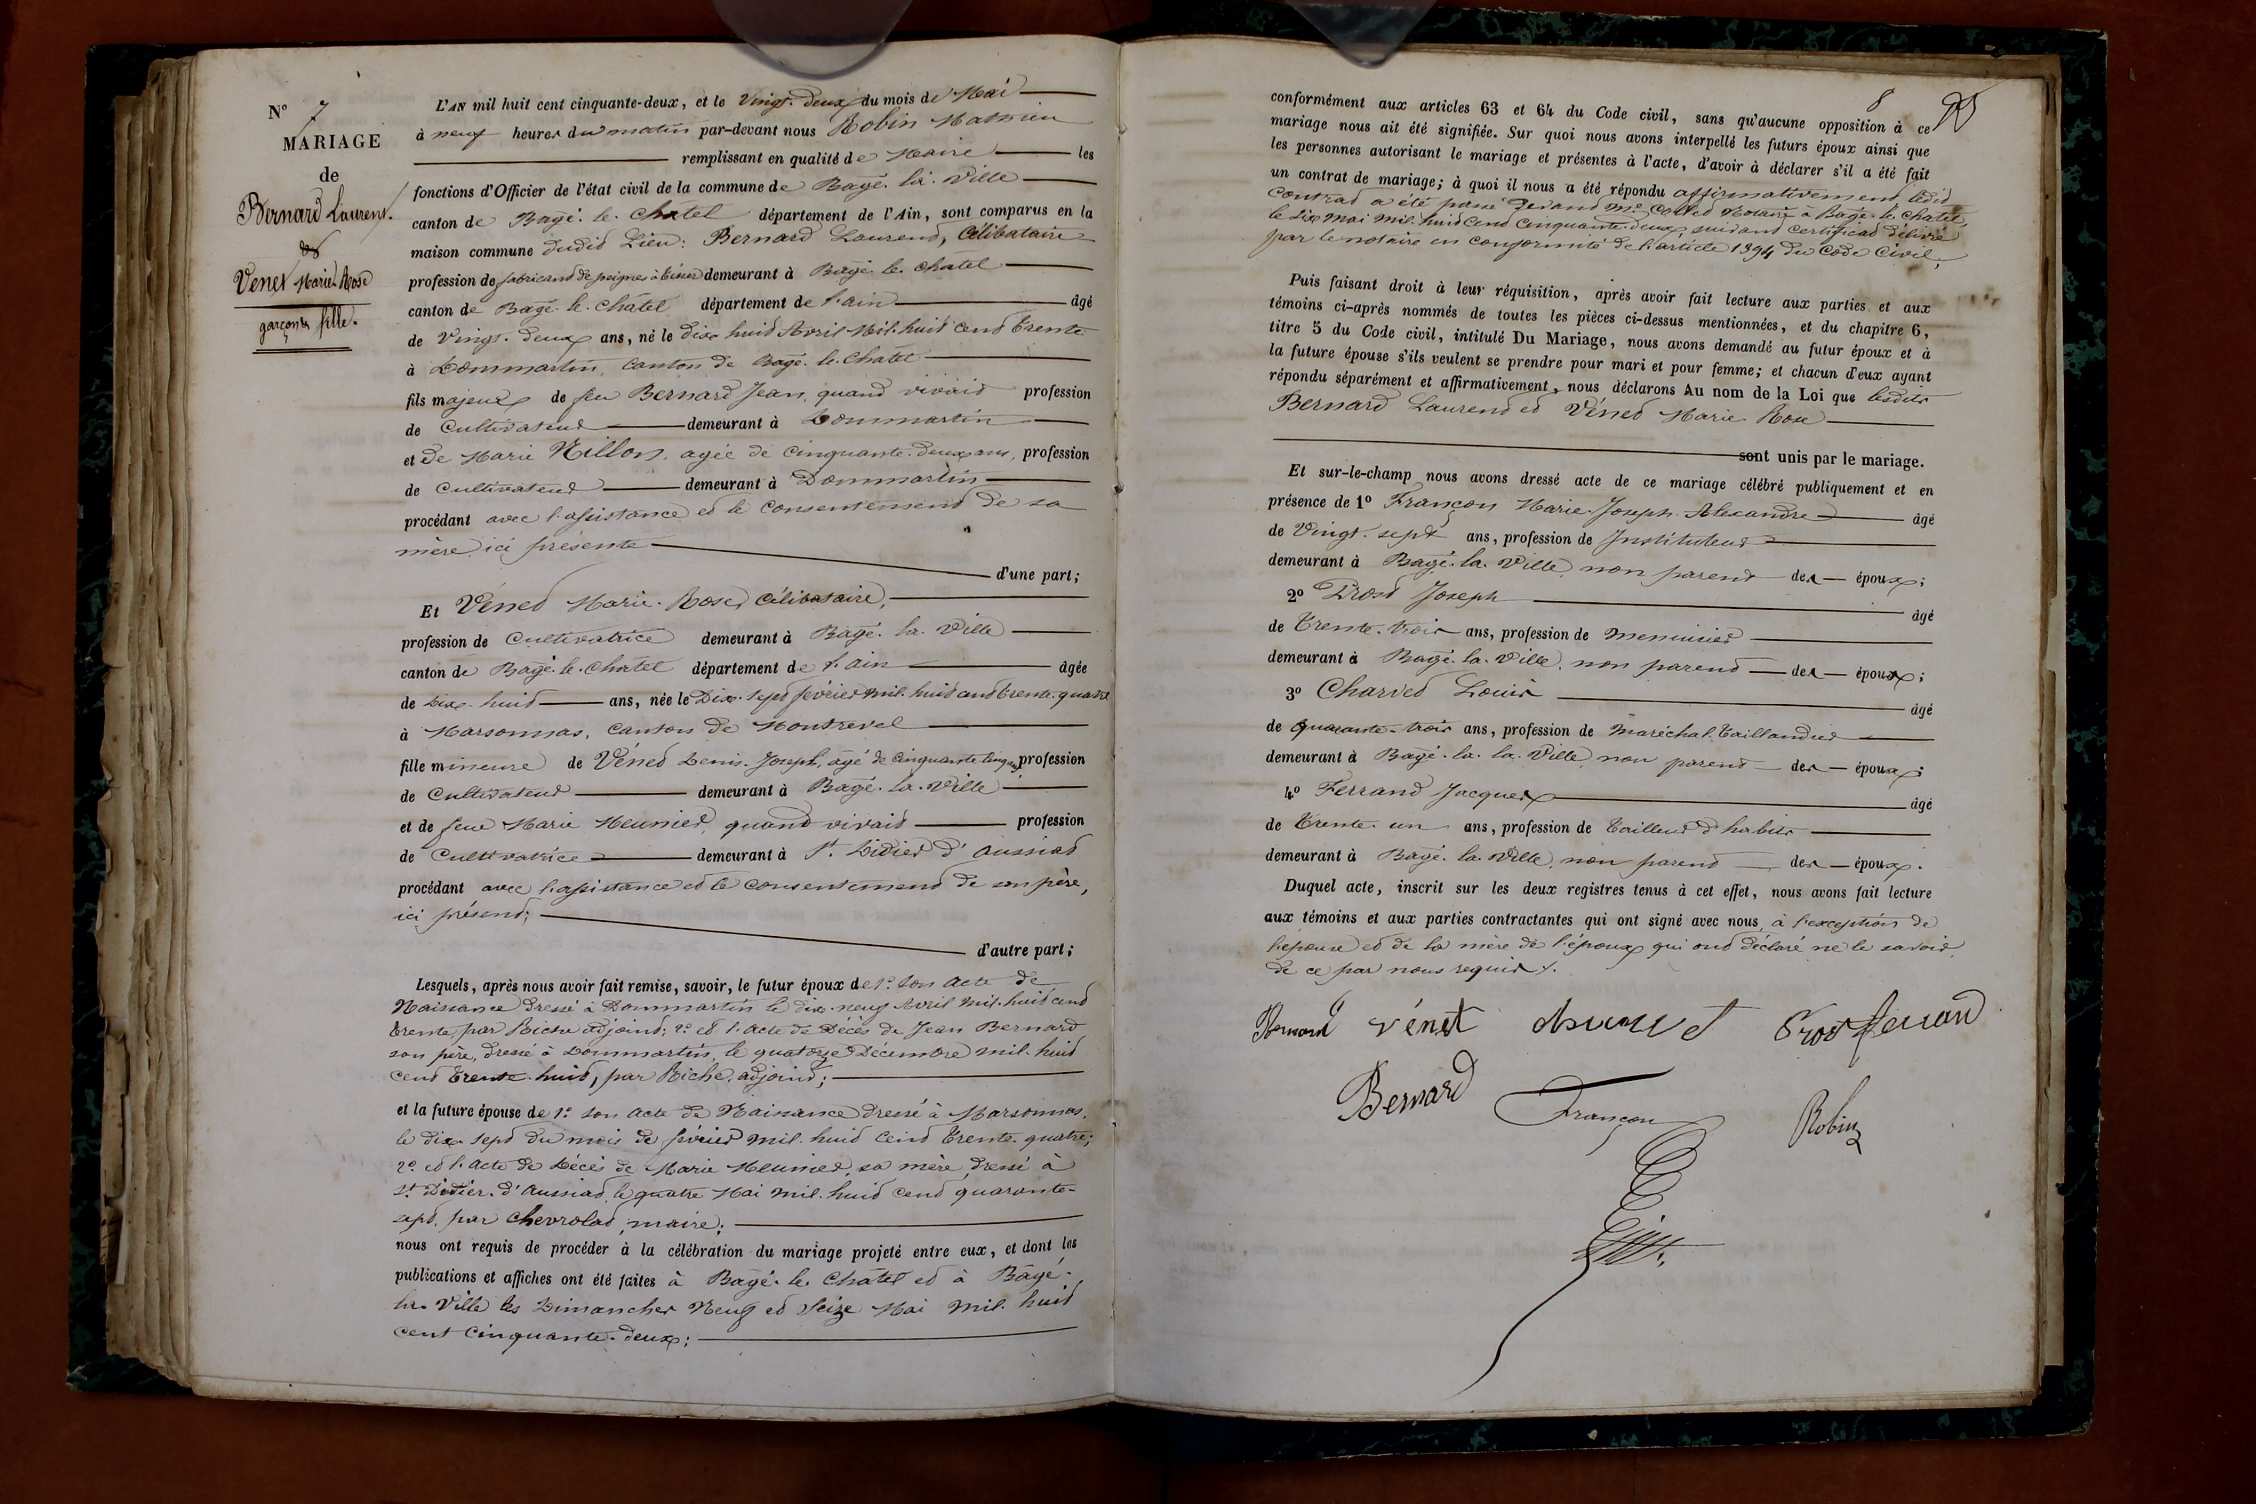 N° 7
MARIAGE
de
Bernard Laurent.
et
Venet Marie Rose
garçon & fille.
L'AN mil huit cent cinquante-deux, et le Vingt-deux du mois de Mai
à neuf heures du matin par-devant nous Robin Mathieu
remplissant en qualité de Maire les
fonctions d'Officier de l'état civil de la commune de Bagé-la-Ville
canton de Bagé-le-Chatel département de l'Ain, sont comparus en la
maison commune dudit Lieu: Bernard Laurent, Célibataire
profession de fabricant de peignes à tisser demeurant à Bagé-le-Chatel
canton de Bagé-le-Châtel département de l'ain âgé
de Vingt-deux ans, né le dix-huit Avril Mil-huit cent trente
à Dommartin, canton de Bagé-le-Chatel
fils majeur de feu Bernard Jean, quand vivait profession
de Cultivateur demeurant à Dommartin
et de Marie Nillon, agée de Cinquante-deux ans, profession
de Cultivateur demeurant à Dommartin
procédant avec l'assistance et le consentement de sa
mère ici présente
d'une part;
Et Vénet Marie-Rose, Célibataire,
profession de Cultivatrice demeurant à Bagé-la-Ville
canton de Bagé-le-Chatel département de l'ain âgée
de Dix-huit ans, née le Dix-sept février Mil-huit cent trente-quatre
à Marsonnas, canton de Montrevel
fille mineure de Vénet Denis-Joseph, agé de Cinquante cinq ans profession
de Cultivateur demeurant à Bagé-la-Ville
et de feue Marie Meunier, quand vivait profession
de Cultivatrice demeurant à St. Didier d'Aussiat
procédant avec l'assistance et le consentement de son père,
ici présent;
d'autre part;
Lesquels, après nous avoir fait remise, savoir, le futur époux de 1°. son acte de
Naissance dressé à Dommartin le dix-neuf Avril Mil-huit cent
trente, par Riche adjoint; 2°. et l'acte de Décès de Jean Bernard
son père, dressé à Dommartin, le quatorze Décembre mil-huit
cent trente-huit, par Riche, adjoint;
et la future épouse de 1°. son acte de Naissance dressé à Marsonnas,
le dix-sept du mois de février mil-huit Cent trente-quatre;
2°. et l'acte de Décès de Marie Meunier, sa mère, dressé à
St. Didier-d'Aussiat, le quatre Mai mil-huit cent quarante-
sept, par Chevrolat, maire;
nous ont requis de procéder à la célébration du mariage projeté entre eux, et dont les
publications et affiches ont été faites à Bagé-le-Châtel et à Bagé-
la-Ville les Dimanches Neuf et Seize Mai mil-huit
cent cinquante-deux;
8
conformément aux articles 63 et 64 du Code civil, sans qu'aucune opposition à ce
mariage nous ait été signifiée. Sur quoi nous avons interpellé les futurs époux ainsi que
les personnes autorisant le mariage et présentes à l'acte, d'avoir à déclarer s'il a été fait
un contrat de mariage; à quoi il nous a été répondu affirmativement, ledit
Contrat a été passé devant Me. Collet Notaire à Bagé-le-Chatel,
le Six Mai Mil-huit Cent Cinquante-deux, suivant certificat délivré
par le notaire en conformité de l'article 1394 du Code Civil;
Puis faisant droit à leur réquisition, après avoir fait lecture aux parties et aux
témoins ci-après nommés de toutes les pièces ci-dessus mentionnées, et du chapitre 6,
titre 5 du Code civil, intitulé Du Mariage, nous avons demandé au futur époux et à
la future épouse s'ils veulent se prendre pour mari et pour femme; et chacun d'eux ayant
répondu séparément et affirmativement, nous déclarons Au nom de la Loi que lesdits
Bernard Laurent et Vénet Marie Rose
sont unis par le mariage.
Et sur-le-champ nous avons dressé acte de ce mariage célébré publiquement et en
présence de 1° Françon Marie-Joseph-Alexandre âgé
de Vingt-sept ans, profession de Instituteur
demeurant à Bagé-la-Ville, non parent des époux;
2° Prost Joseph âgé
de Trente-trois ans, profession de menuisier
demeurant à Bagé-la-Ville, non parent des époux;
3° Charvet Louis âgé
de quarante-trois ans, profession de Maréchal-Taillandier
demeurant à Bagé-la-la-Ville, non parent des époux;
4° Ferrand Jacques âgé
de Trente-un ans, profession de Tailleur d'habits
demeurant à Bagé-la-Ville, non parent des époux.
Duquel acte, inscrit sur les deux registres tenus à cet effet, nous avons fait lecture
aux témoins et aux parties contractantes qui ont signé avec nous, à l'exception de
l'épouse et de la mère de l'époux qui ont déclaré ne le savoir,
de ce par nous requis.
Bernard vénet charvet Prost ferrand
Bernard Françon Robin